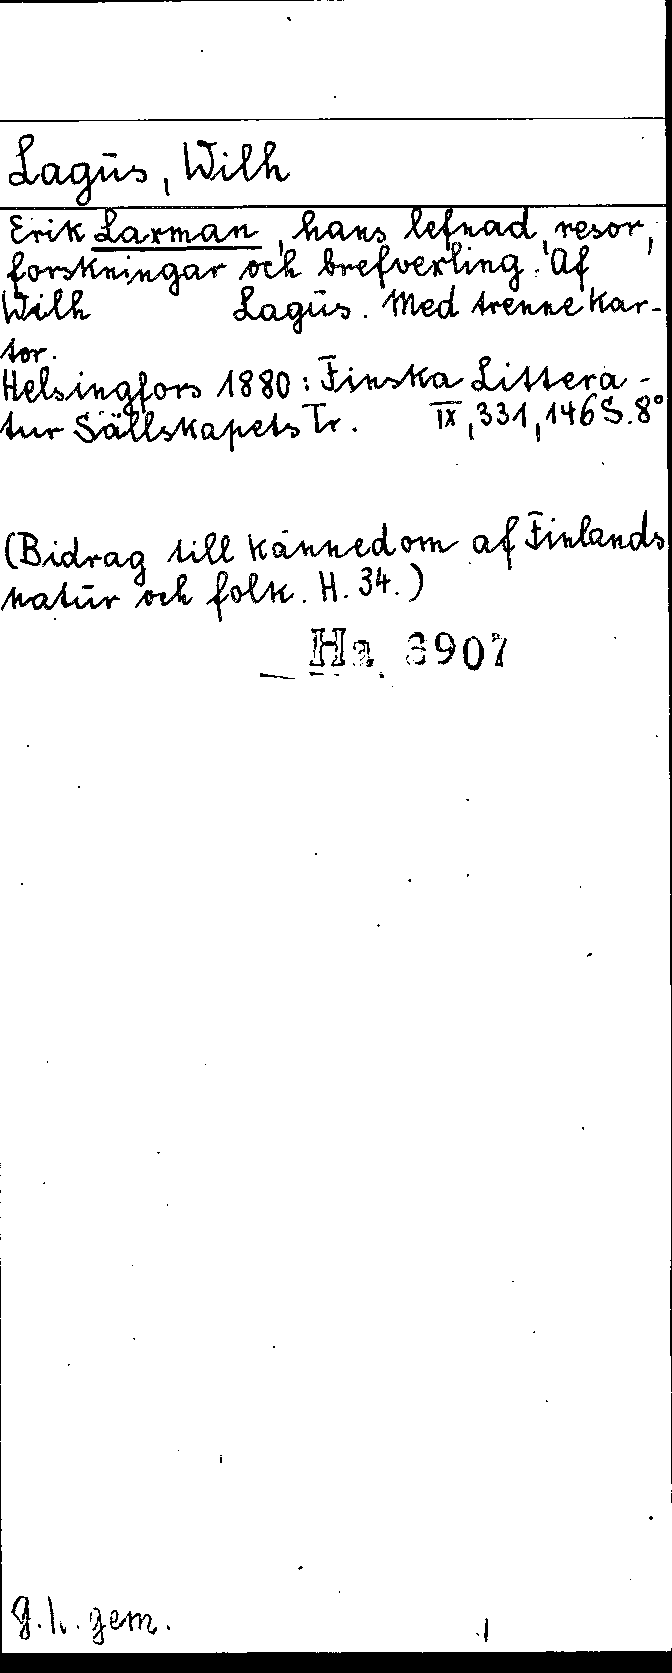 Lagus, Wilh
Erik Laxman, hans lefnad, resor,
forskningar och brefvexling. Af
Wilh Lagus. Med trenne kar-
tor.
Helsingfors 1880: Finska Littera-
tur Sällskapets Tr. IX, 331, 146 S. 8°
(Bidrag till kännedom af Finlands
natur och folk. H. 34.)
Ha 3907
g.h. gem.